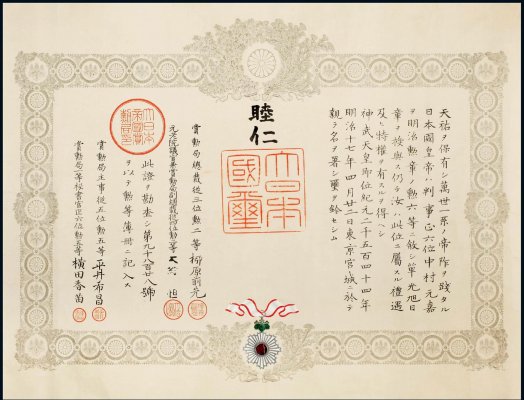 天祐ヲ保有シ萬世一系ノ帝祚ヲ踐タル
日本國皇帝ハ判事正六位中村元嘉
ヲ明治勲章ノ勲六等ニ敍シ單光旭日
章ヲ授與ス仍テ汝ハ此位ニ屬スル禮遇
及ヒ特權ヲ有スルヲ得ヘシ
神武天皇即位紀元二千五百四十四年
明治十七年四月廿二日東京宮城ニ於テ
親ラ名ヲ署シ璽ヲ鈐セシム
睦仁
大日本國璽
賞勲局總裁從三位勲二等柳原前光
元老院議官兼賞勲局副總裁從四位勲三等大給恒
此證ヲ勘査シ第九千八百廿八號
ヲ以テ勲等簿冊ニ記入ス
賞勲局主事從五位勲五等平井希昌
賞勲局一等秘書官正六位勲五等横田香苗